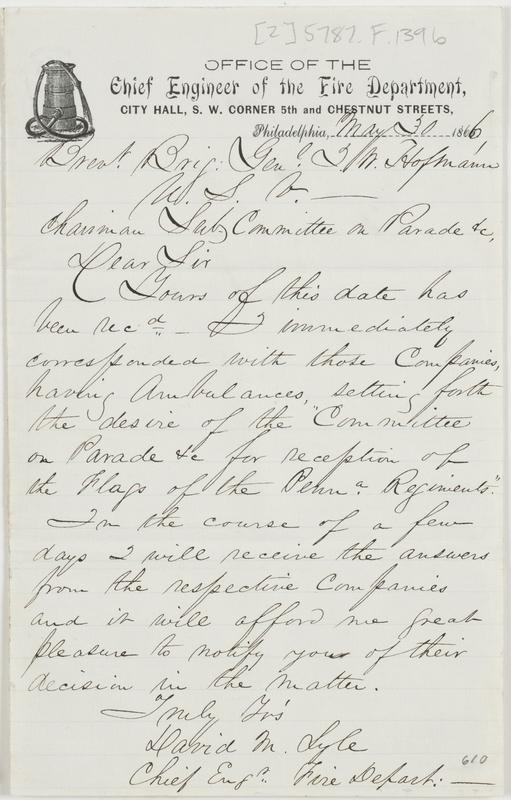 [2] 5787.F.1396
OFFICE OF THE
Chief Engineer of the Fire Department,
CITY HALL, S. W. CORNER 5th and CHESTNUT STREETS,
Philadelphia, May 30 1866
Brevt. Brig. Genl. J. W. Hofmann
U. S. V. —
Chairman Sub Committee on Parade &c,
Dear Sir
Yours of this date has
been recd — I immediately
corresponded with those Companies,
having Ambulances, setting forth
the desire of the "Committee
on Parade &c for reception of
the Flags of the Penna. Regiments".
In the course of a few
days I will receive the answers
from the respective Companies
and it will afford me great
pleasure to notify you of their
decision in the matter.
Truly Yrs
David M. Lyle
Chief Engr. Fire Depart: —
610